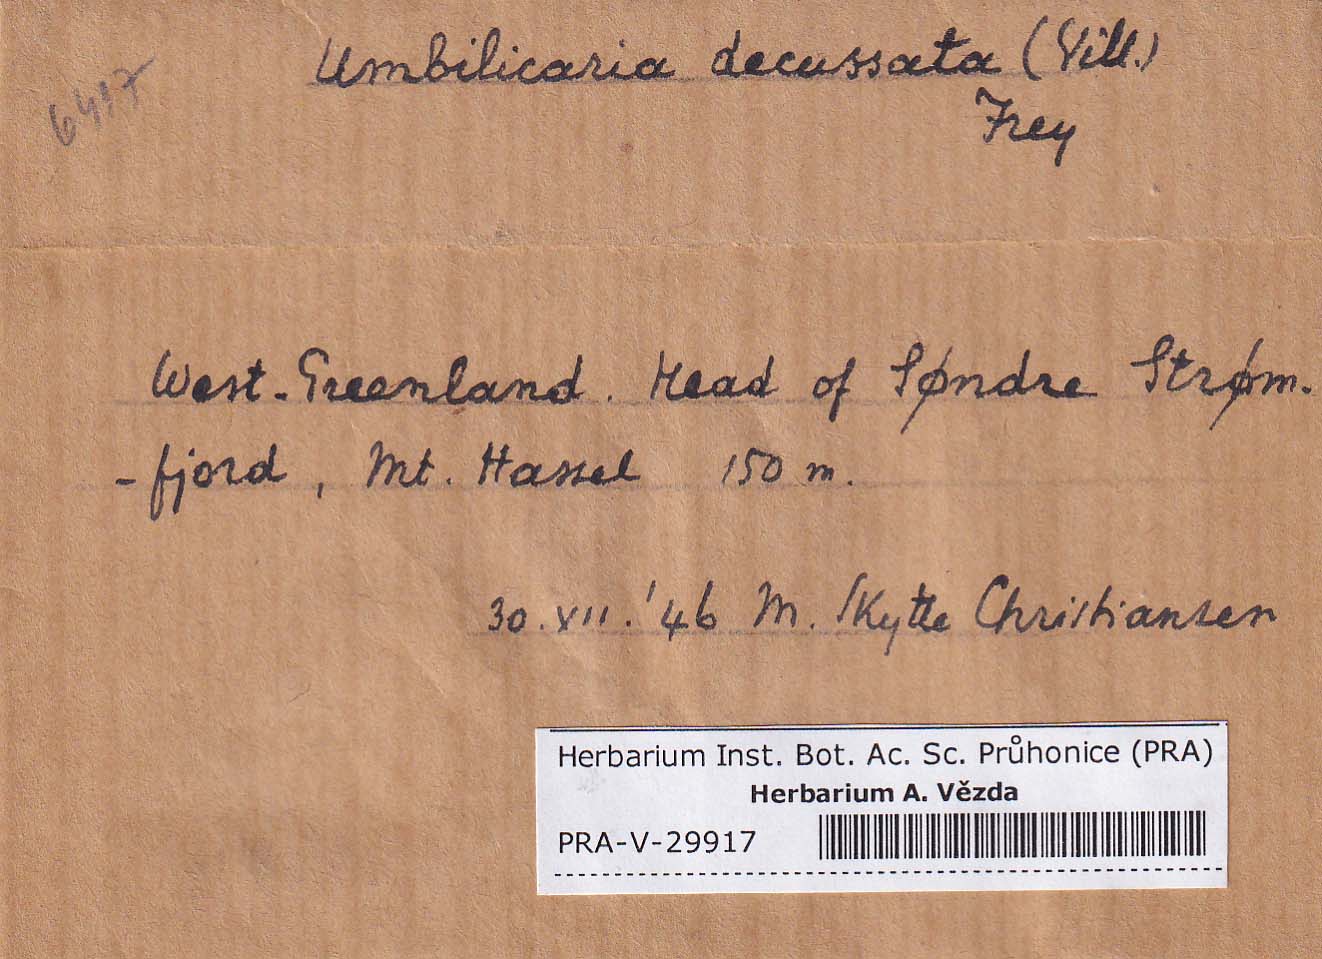 Umbilicaria decussata (Vill.)
Frey
West-Greenland. Head of Søndre Strøm-
-fjord, Mt. Hassel 150 m.
30. XII. '46 M. Skytte Christiansen
Herbarium Inst. Bot. Ac. Sc. Průhonice (PRA)
Herbarium A. Vězda
PRA-V-29917